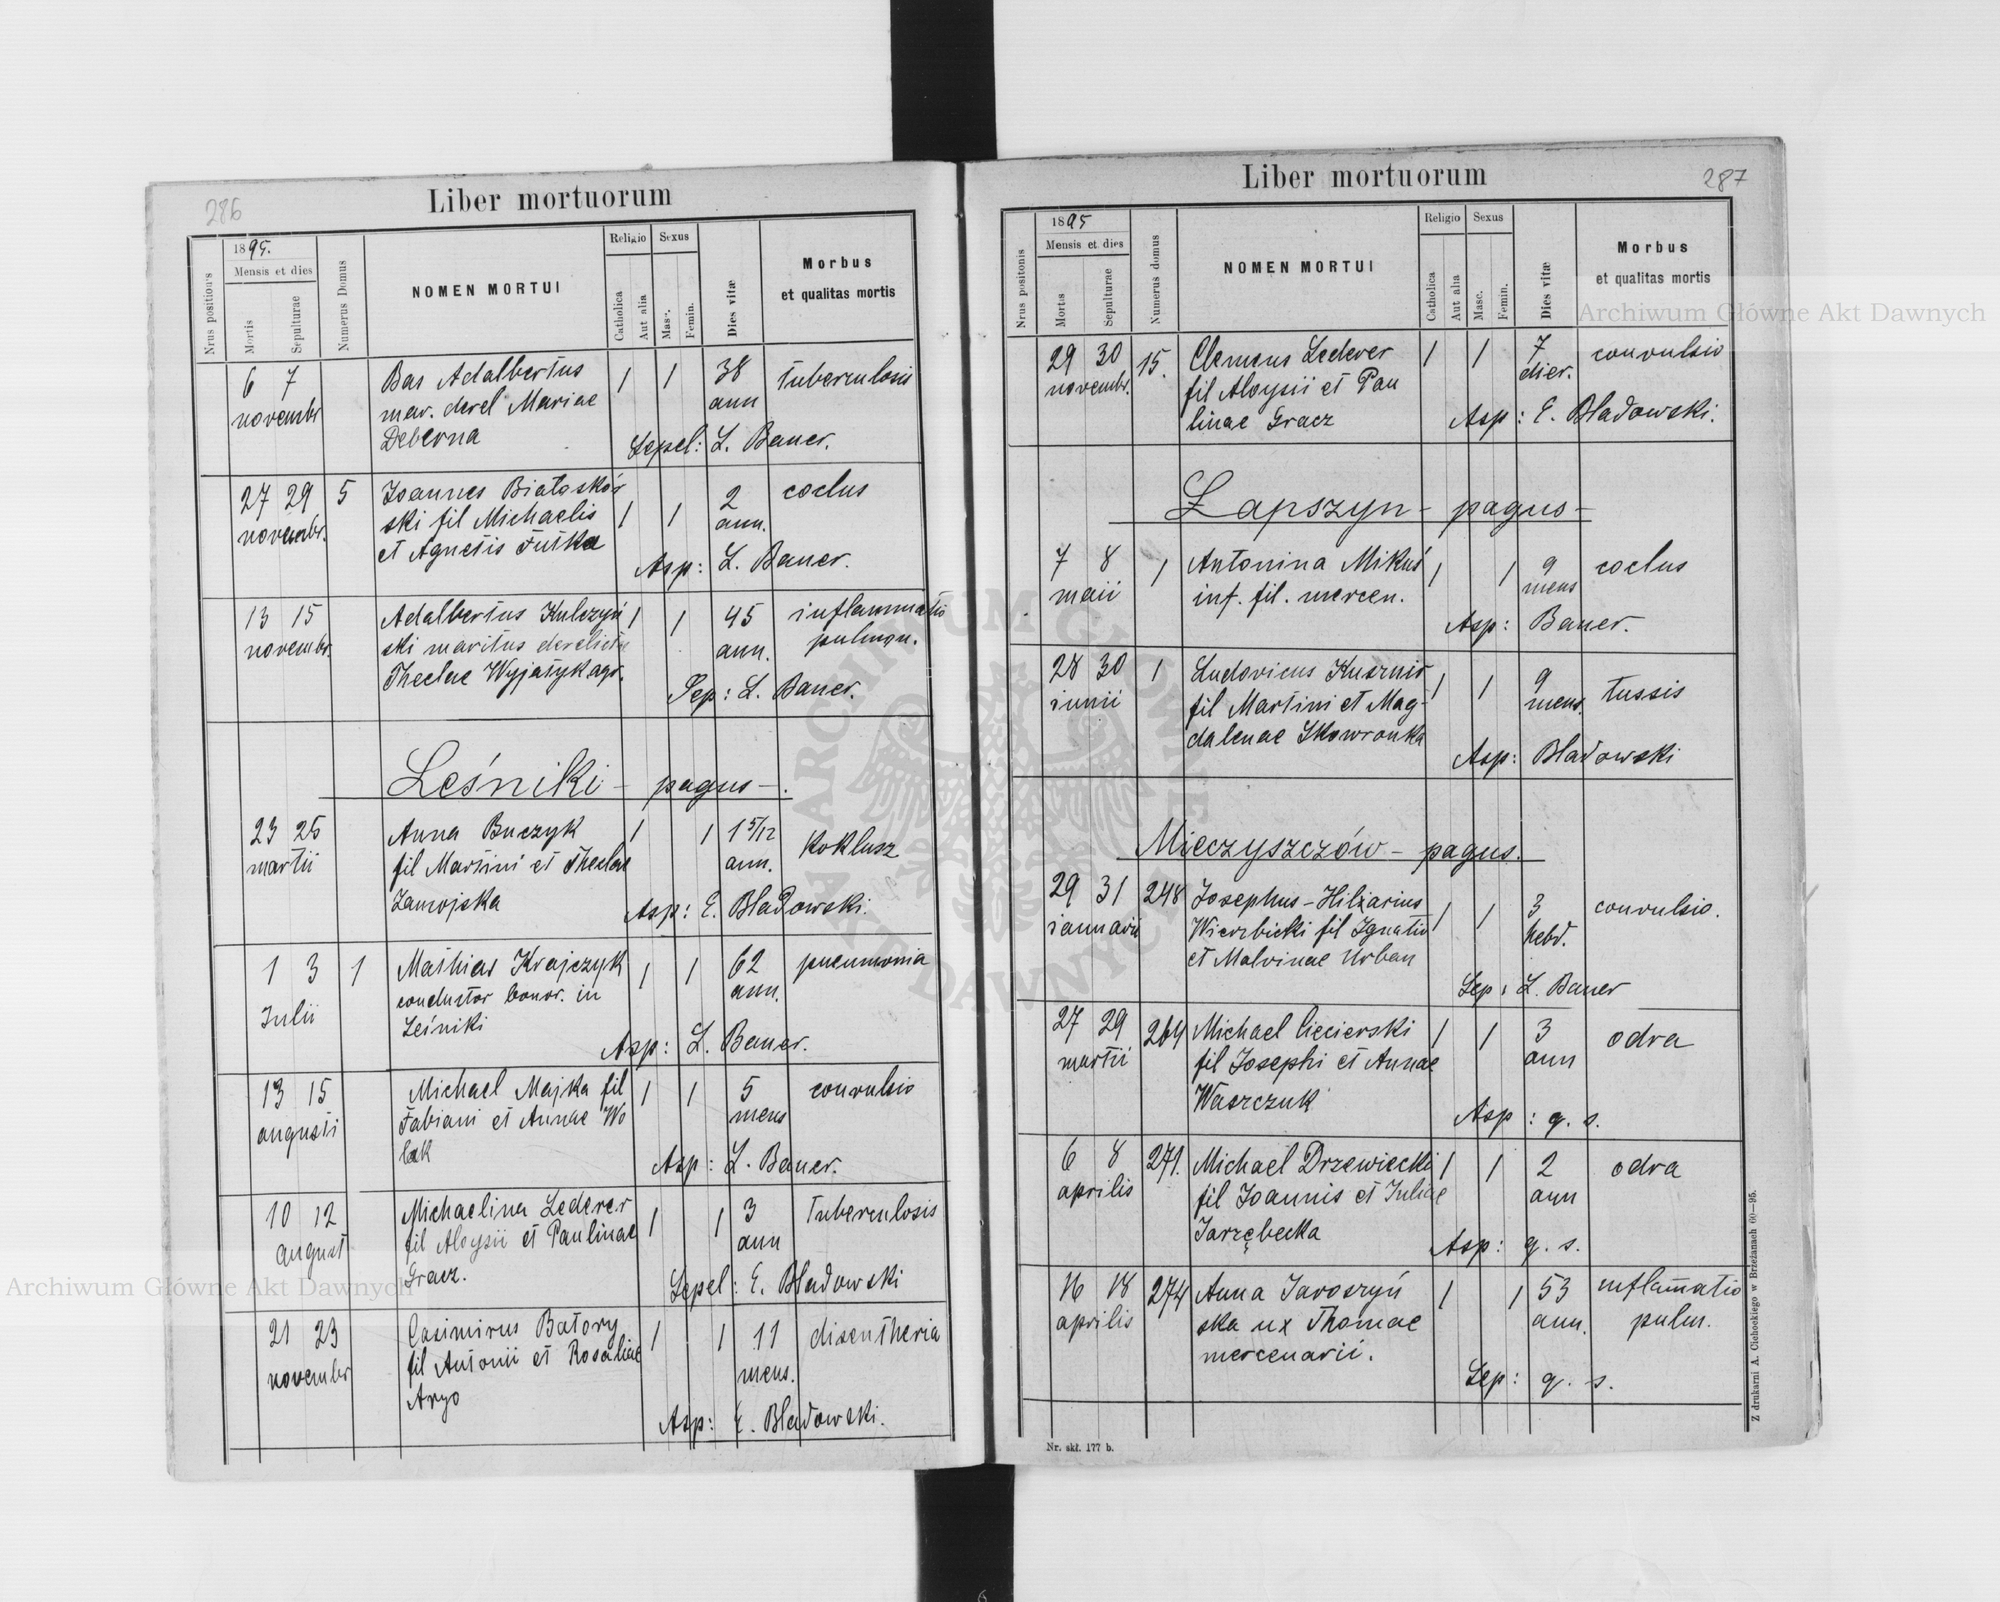 286
Liber mortuorum
Nrus positionis
1895.
Mensis et dies
Mortis
Sepulturae
Numerus Domus
NOMEN MORTUI
Religio
Catholica
Aut alia
Sexus
Masc.
Femin.
Dies vitæ
Morbus
et qualitas mortis
6 7 Bas Adalbertus 1 1 38 tuberculosis
novembr mar. derel Mariae ann
Deberna Sepel: L. Bauer.
27 29 5 Joannes Białoskór
novembr. ski fil Michaelis 1 1 2 ann. coclus
et Agnetis Futka
Asp: L. Bauer.
13 15 Adalbertus Kulczyń 1 1 45 inflammatio
novembr. ski maritus derelictae ann. pulmon.
Theclae Wyjatyk agr. Sep: L. Bauer.
Leśniki - pagus -.
23 25 Anna Buczyk 1 1 1 5/12
martii fil Martini et Theclae ann. Koklusz
Zamojska Asp: E. Bladowski.
1 3 1 Mathias Krajczyk 1 1 62 pneumonia
Julii conductor bonor. in ann.
Leśniki
Asp: L. Bauer.
13 15 Michael Majka fil 1 1 5 convulsio
augusti Fabiani et Annae Wo mens
lak Asp: L. Bauer.
10 12 Michaelina Lederer 1 1 3 tuberculosis
august fil Aloysii et Paulinae ann
Gracz. Sepel: E. Bladowski
21 23 Casimirus Batory 1 1 11 disentheria
novembr fil Antonii et Rosaliae mens.
Argo
Asp: E. Bladowski.
Liber mortuorum
287
Nrus positonis
1895
Mensis et dies
Mortis
Sepulturae
Numerus domus
NOMEN MORTUI
Religio
Catholica
Aut alia
Sexus
Masc.
Femin.
Dies vitæ
Morbus
et qualitas mortis
29 30 15. Clemens Lederer 1 1 7 convulsio
novembr. fil Aloysii et Pau dier.
linae Gracz Asp: E. Bladowski.
Łapszyn - pagus -
7 8 1 Antonina Mikuś 1 1 9 coclus
maii inf. fil. mercen. mens
Asp: Bauer.
28 30 1 Ludovicus Kusznir 1 1 9 tussis
iunii fil Martini et Mag- mens.
dalenae Skowronka
Asp: Bladowski
Mieczyszczów - pagus.
29 31 248 Josephus-Hilarius 1 1 3 convulsio.
ianuarii Wierzbicki fil Ignatii hebd.
et Malvinae Urban
Sep: L. Bauer
27 29 264 Michael Cięcierski 1 1 3 odra
martii fil Josephi et Annae ann
Waszczuk
Asp: q. s.
6 8 271. Michael Drzewiecki 1 1 2 odra
aprilis fil Joannis et Juliae ann
Jarzębecka
Asp: q. s.
16 18 274 Anna Jaroszyń 1 1 53 inflamatio
aprilis ska ux Thomae ann. pulm.
mercenarii.
Sep: q. s.
Nr. skł. 177 b.
Z drukarni A. Cichockiego w Brzeżanach 60—95.
Archiwum Główne Akt Dawnych
Archiwum Główne Akt Dawnych
ARCHIWUM GŁÓWNE AKT DAWNYCH
6